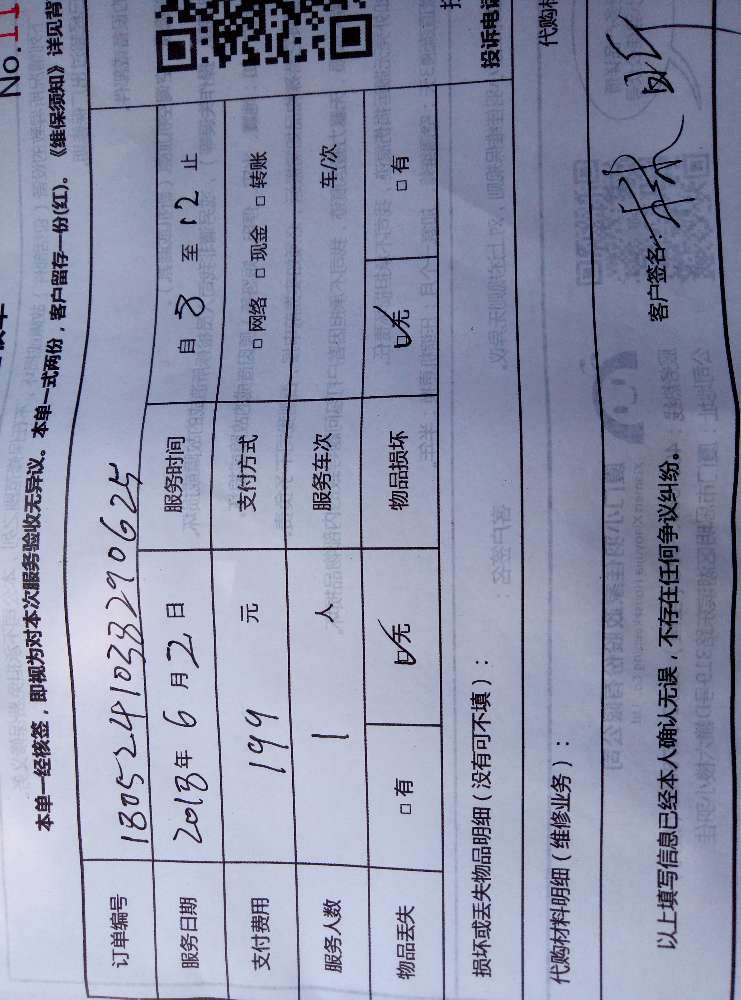 No.11
本单一经核签，即视为对本次服务验收无异议。本单一式两份，客户留存一份(红)。《维保须知》详见背
订单编号 1805241038290625
服务日期 2018年 6 月 2 日 服务时间 自 8 至 12 止
支付费用 199 元 支付方式 □ 网络 □ 现金 □ 转账
服务人数 1 人 服务车次 车/次
物品丢失 □ 有 ☑无 物品损坏 ☑无 □ 有
损坏或丢失物品明细（没有可不填）：
投诉电话
代购材料明细（维修业务）：
代购材
以上填写信息已经本人确认无误，不存在任何争议纠纷。 客户签名: